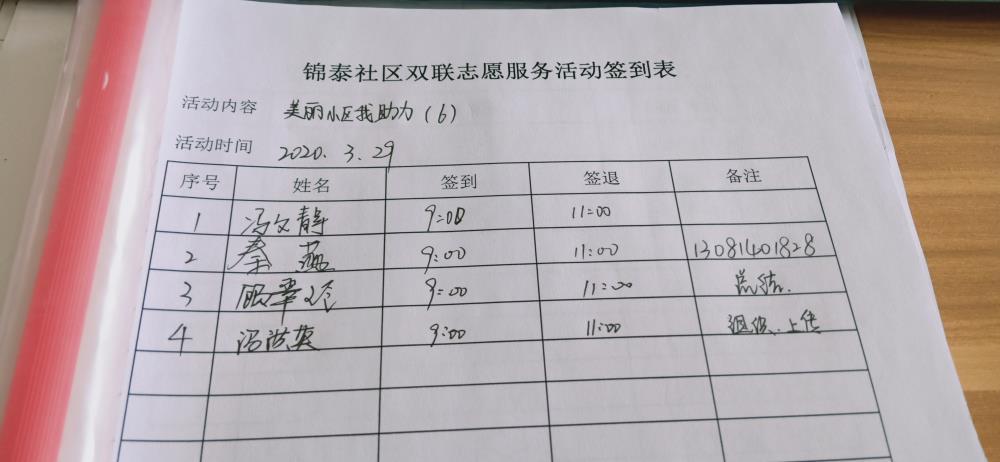 锦泰社区双联志愿服务活动签到表
活动内容 美丽小区我助力(6)
活动时间 2020.3.29
序号 姓名 签到 签退 备注
1 冯文静 9:00 11:00
2 秦燕 9:00 11:00 13081401828
3 9:00 11:00 总结.
4 冯洪英 9:00 11:00 上传